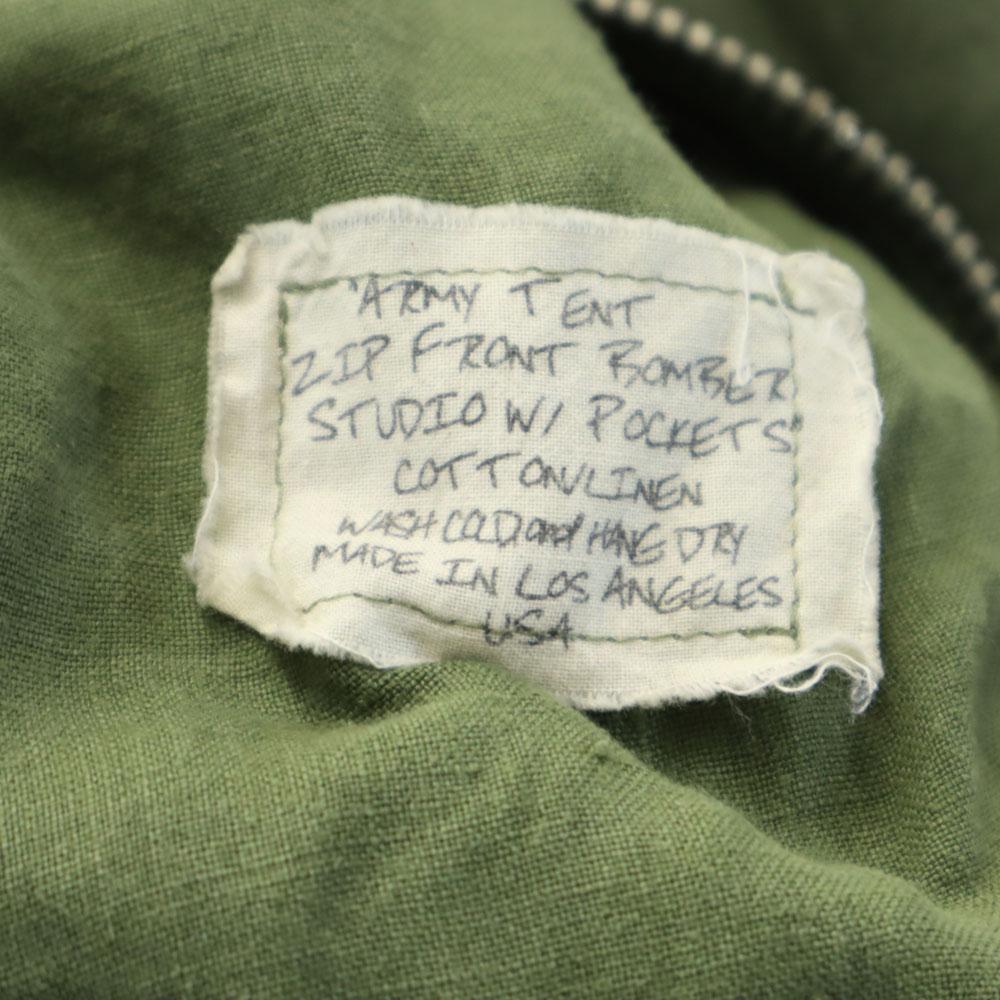 "ARMY TENT
ZIP FRONT BOMBER
STUDIO W/ POCKETS"
COTTON/LINEN
WASH COLD and HANG DRY
MADE IN LOS ANGELES
USA